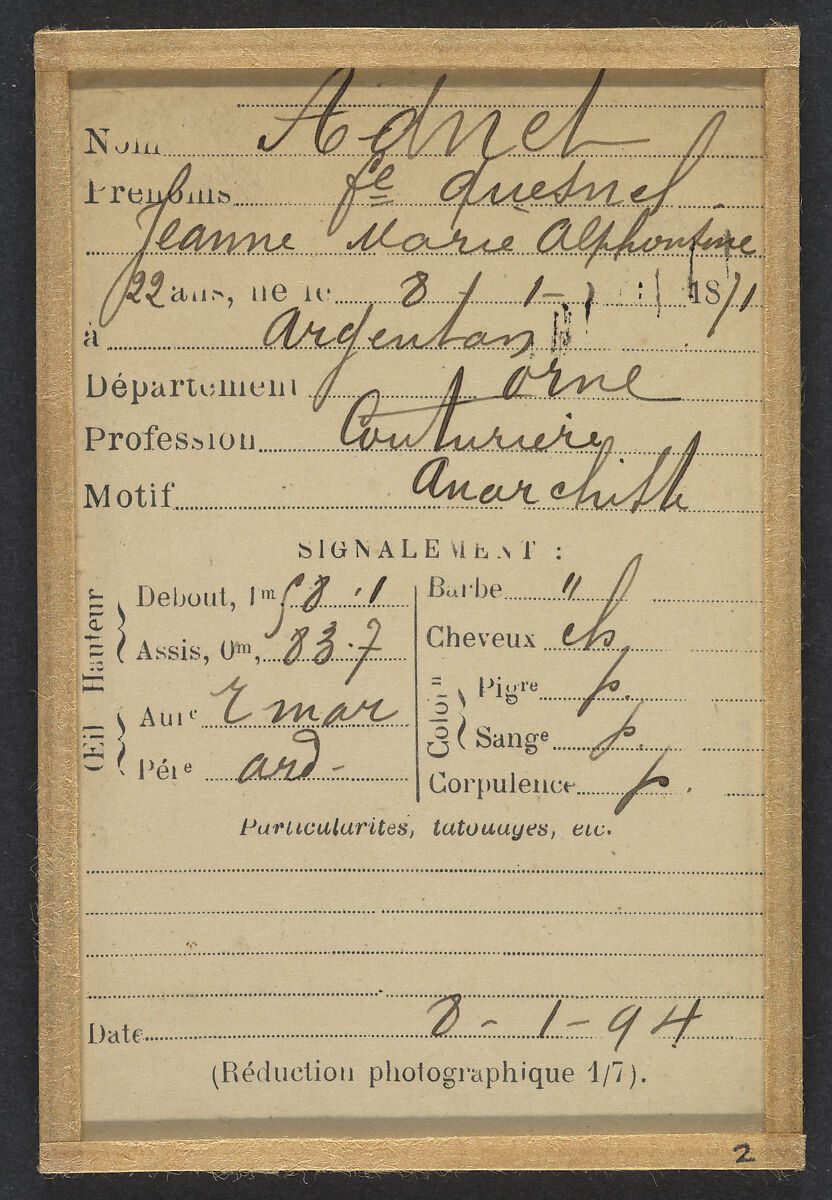 Nom Adnet
Prénoms fe Quesnel
Jeanne Marie Alphonsine
22 ans, né le 8 - 1 - 1871
à Argentan
Département Orne
Profession Couturière
Motif Anarchiste
SIGNALEMENT :
Hauteur
Debout, 1m 58.1
Assis, 0m, 83.7
Œil
Aure r mar
Pére ard-
Barbe "
Cheveux ch
Color"
Pigre p.
Sange p.
Corpulence p.
Particularités, tatouages, etc.
Date 8 - 1 - 94
(Réduction photographique 1/7).
2